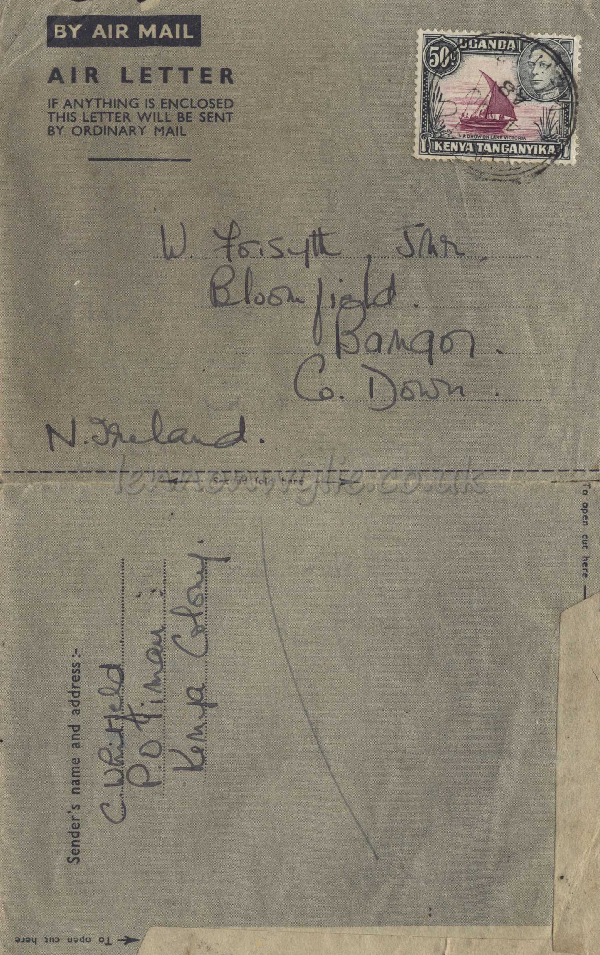 BY AIR MAIL
AIR LETTER
IF ANYTHING IS ENCLOSED
THIS LETTER WILL BE SENT
BY ORDINARY MAIL
UGANDA
50c
KENYA TANGANYIKA
W. Forsyth, Jnr.
Bloomfield.
Bangor.
Co. Down.
N. Ireland.
lennonwylie.co.uk
Second fold here
To open cut here
Sender's name and address :-
C Whitfield
P.O. Kiman
Kenya Colony.
To open cut here